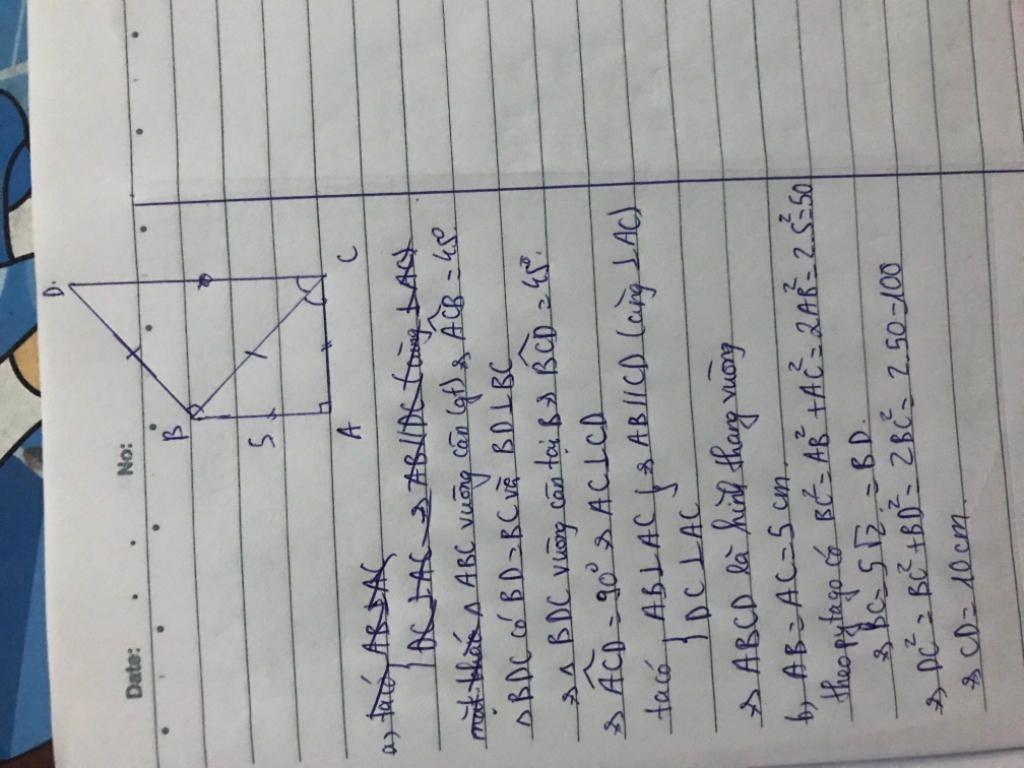 No:
Date:
D
B
C
5
A
a) ta có AB⊥AC
DC⊥AC → AB//DC (cùng ⊥AC)
mặt khác △ABC vuông cân (gt) → ACB̂ = 45⁰
△BDC có BD = BC và BD⊥BC
→ △BDC vuông cân tại B → BCD̂ = 45⁰.
→ ACD̂ = 90⁰ → AC⊥CD
ta có { AB⊥AC } → AB//CD (cùng ⊥AC)
DC⊥AC
→ ABCD là hình thang vuông
b) AB = AC = 5 cm.
theo pytago có BC² = AB² + AC² = 2AB² = 2.5² = 50
→ BC = 5√2 = BD.
→ DC² = BC² + BD² = 2BC² = 2.50 = 100
→ CD = 10 cm.